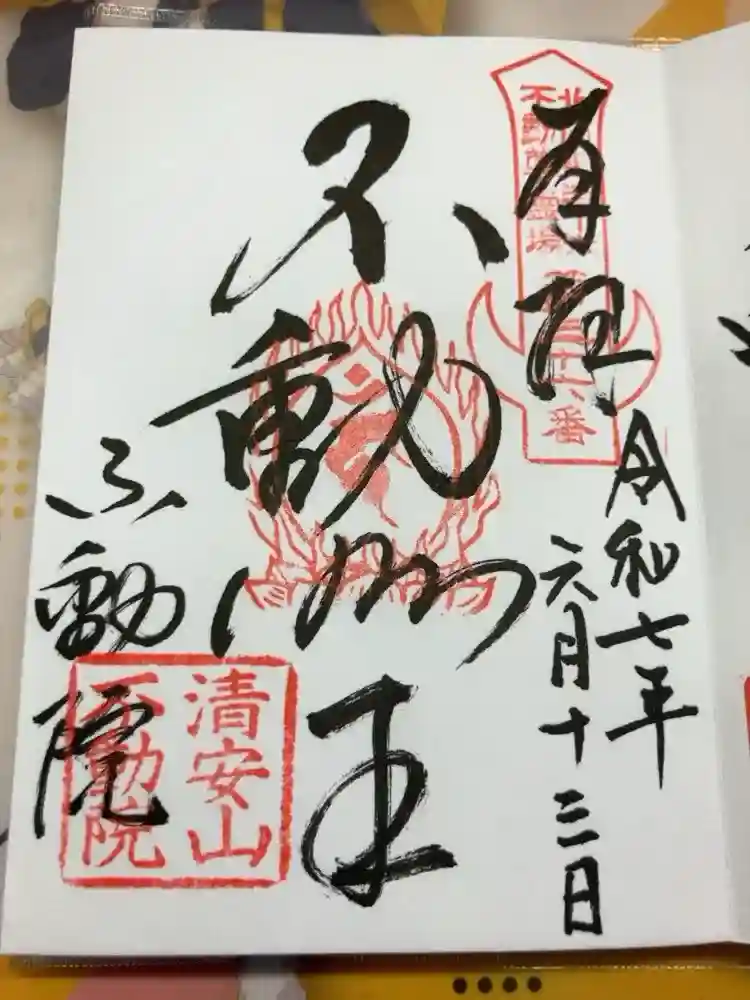 奉拝
令和七年
六月十三日
不動尊霊場
第三十六番
不動明王
不動院
清安山
不動院